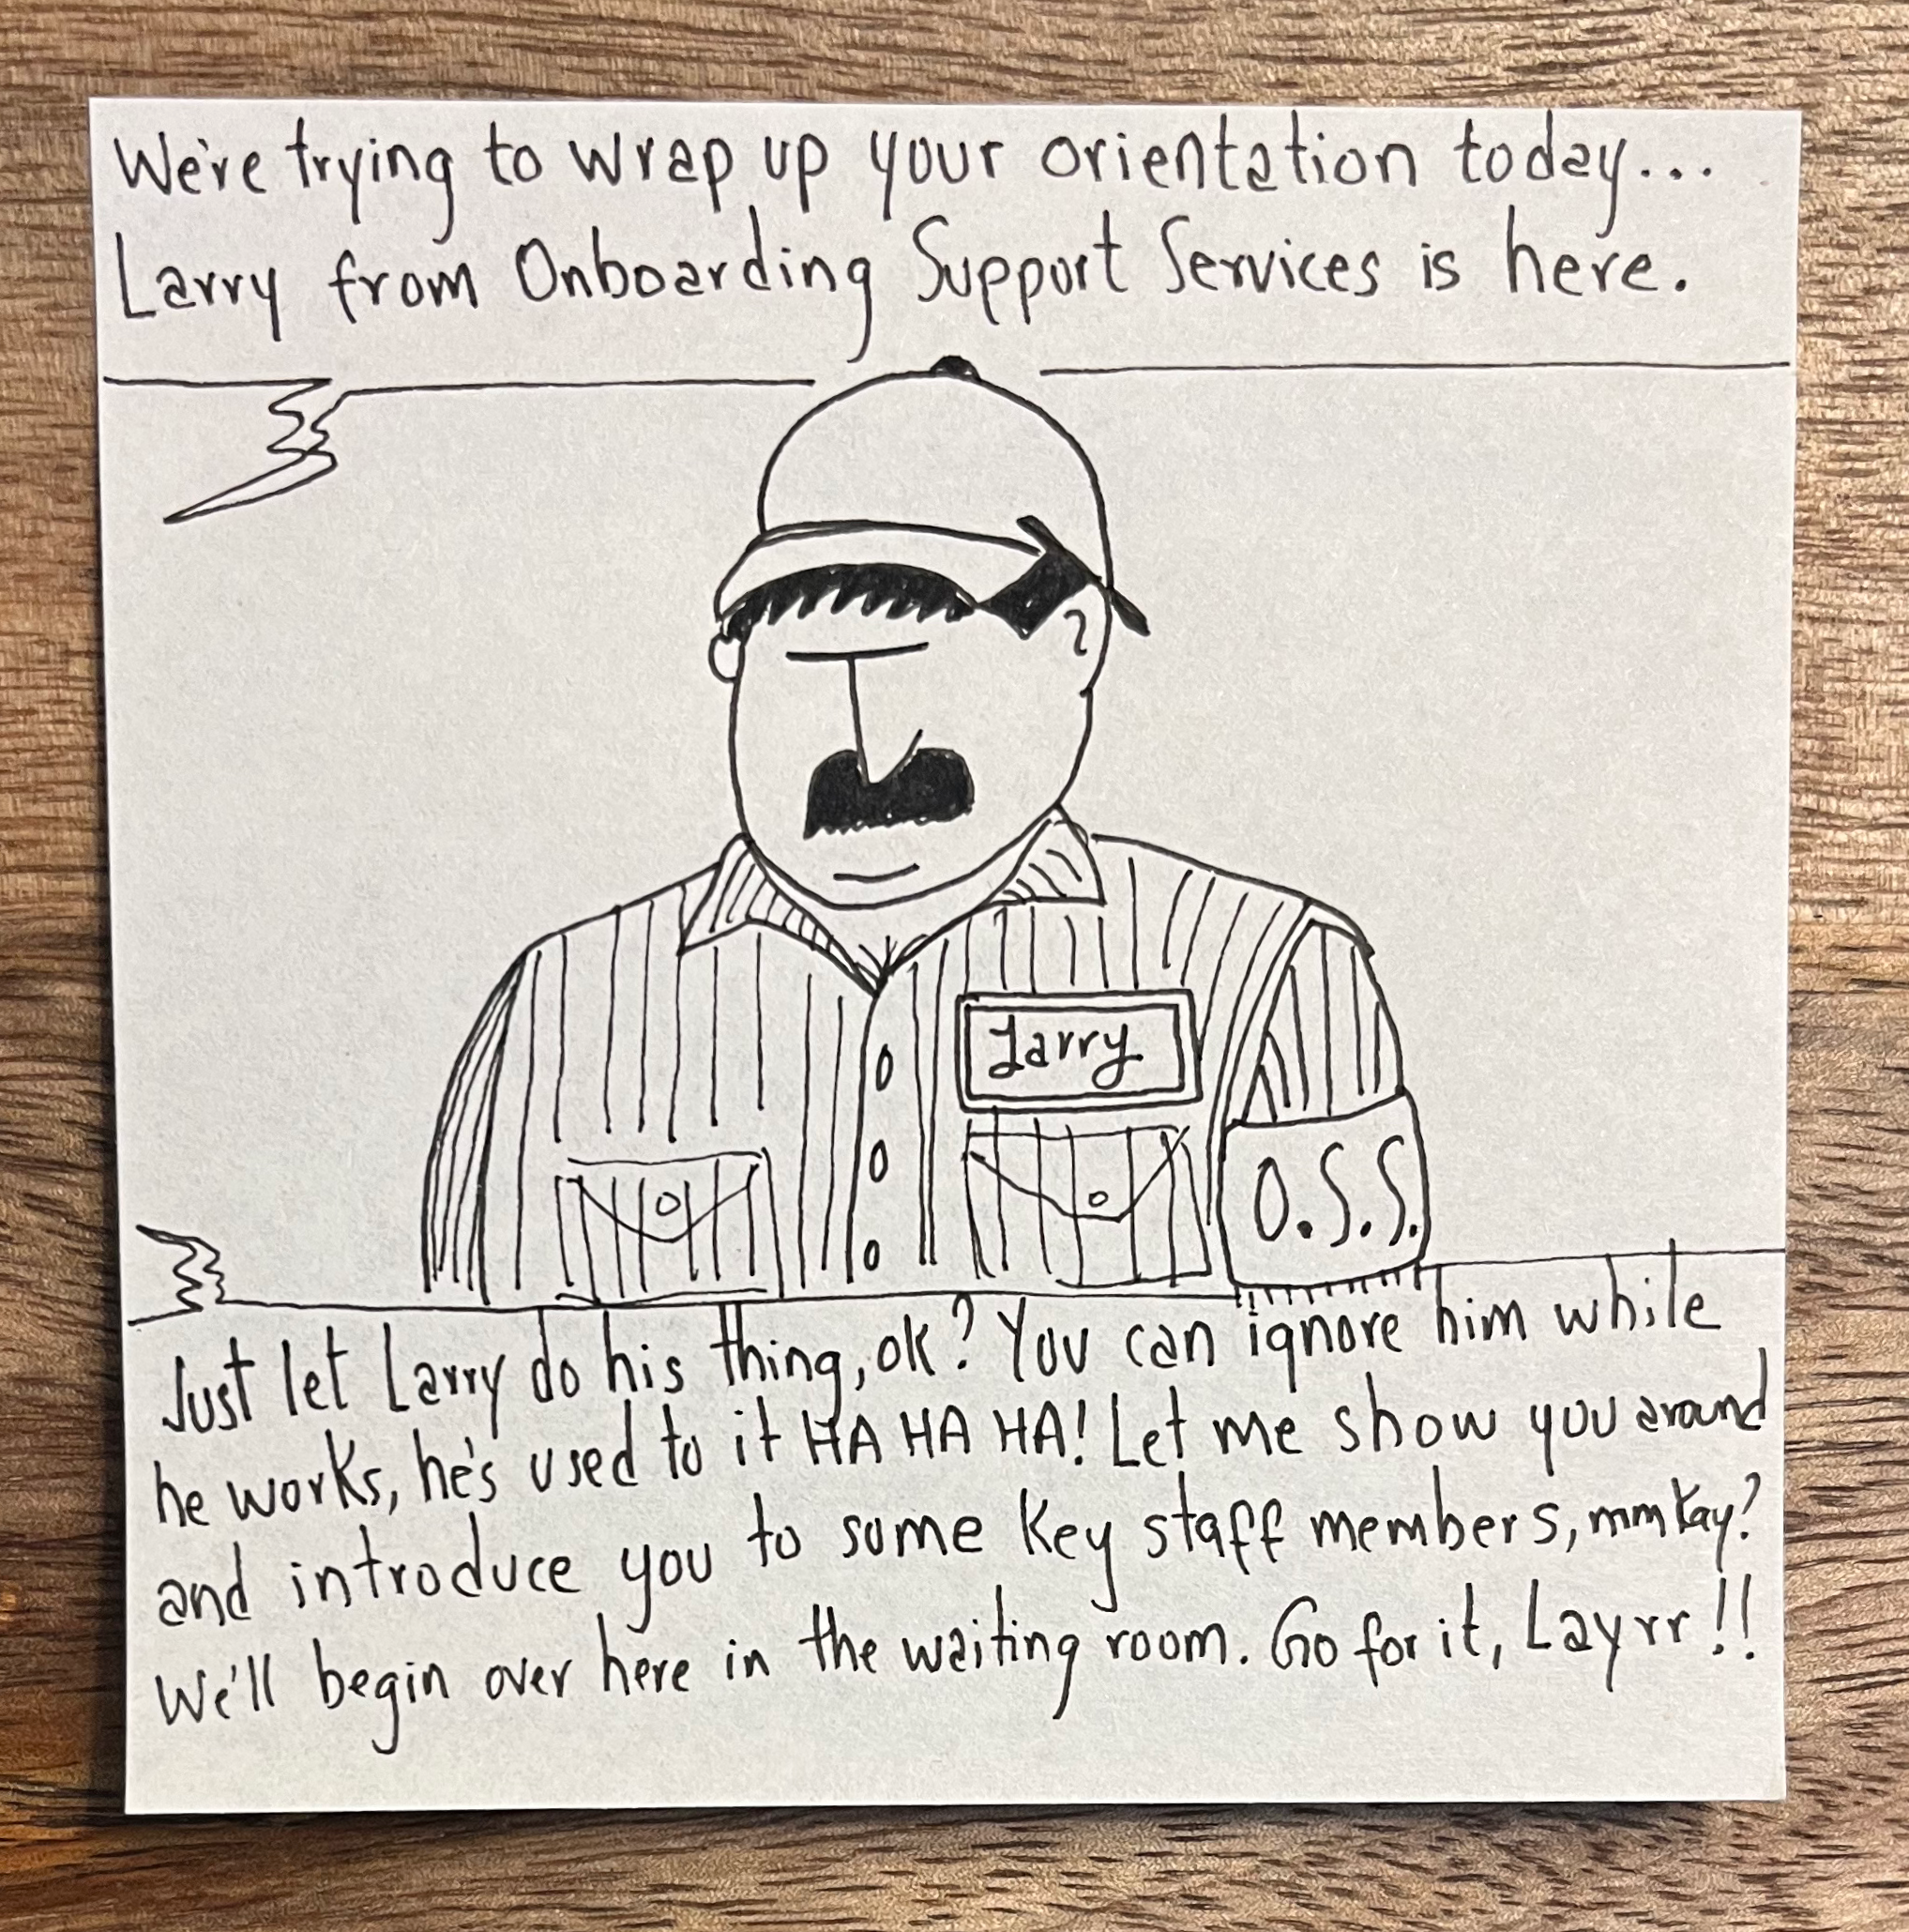 We're trying to wrap up your orientation today...
Larry from Onboarding Support Services is here.
Larry
O.S.S.
Just let Larry do his thing, ok? You can ignore him while
he works, he's used to it HA HA HA! Let me show you around
and introduce you to some key staff members, mmkay?
We'll begin over here in the waiting room. Go for it, Layrr!!